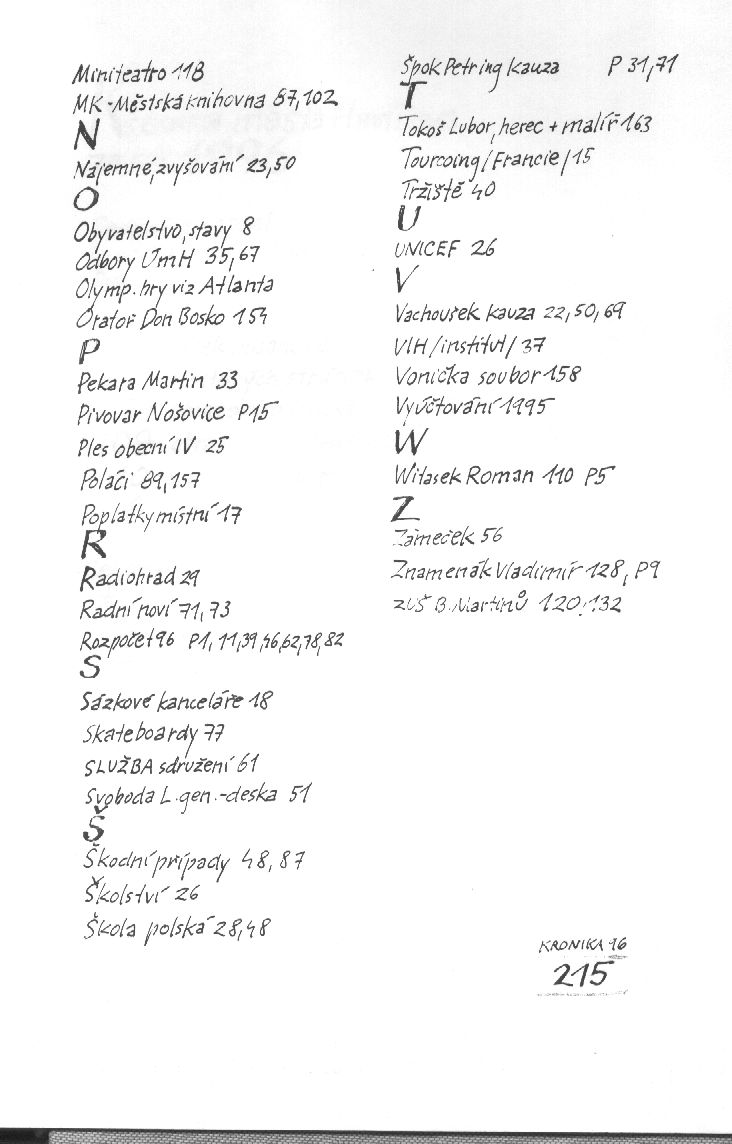 Miniteatro 118
MK - Městská knihovna 87,102
N
Nájemné, zvyšování 23,50
O
Obyvatelstvo, stavy 8
Odbory ÚmH 35,67
Olymp. hry viz Atlanta
Oratoř Don Bosko 154
P
Pekara Martin 33
Pivovar Nošovice P15
Ples obecní IV 25
Poláci 89,157
Poplatky místní 17
R
Radiohrad 29
Radní noví 71,73
Rozpočet 96 P1, 11,39,46,62,78,82
S
Sázkové kanceláře 18
Skateboardy 77
SLUŽBA sdružení 61
Svoboda L. gen. - deska 51
Š
Škodní případy 48, 87
Školství 26
Škola polská 28,48
Špok Petring kauza P 31,71
T
Tokoš Lubor, herec + malíř 163
Tourcoing /Francie/ 15
Tržiště 40
U
UNICEF 26
V
Vachoušek kauza 22,50,69
VIH /institut/ 37
Vonička soubor 158
Vyúčtování 1995
W
Witasek Roman 110 P5
Z
Zámeček 56
Znamenák Vladimír 128, P9
ZUŠ B. Martinů 120,132
KRONIKA 96
215